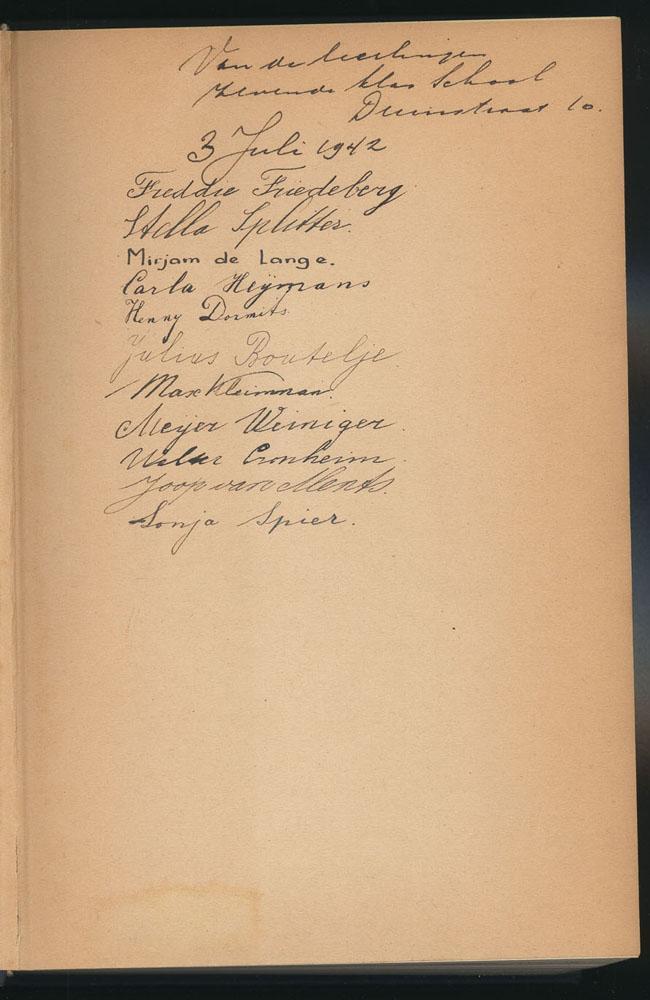 Van de leerlingen
zevende klas School
Duinstraat 10.
3 Juli 1942
Freddie Friedeberg
Stella Splitter.
Mirjam de Lange.
Carla Heÿmans
Henny Dormits.
Julius Boutelje.
Max Kleinman.
Meyer Weiniger.
Walter Cronheim.
Joop van Ments.
Sonja Spier.